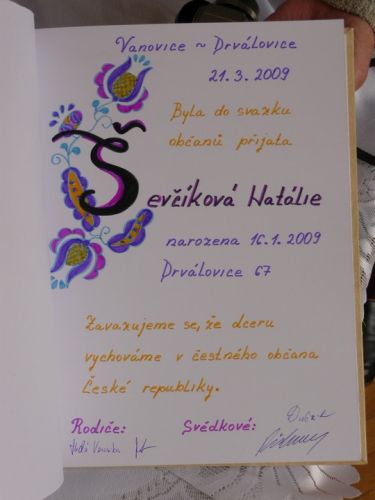 Vanovice ~ Drválovice
21.3.2009
Byla do svazku
občanů přijata
Ševčíková Natálie
narozena 16.1.2009
Drválovice 67
Zavazujeme se, že dceru
vychováme v čestného občana
České republiky.
Rodiče: Svědkové: